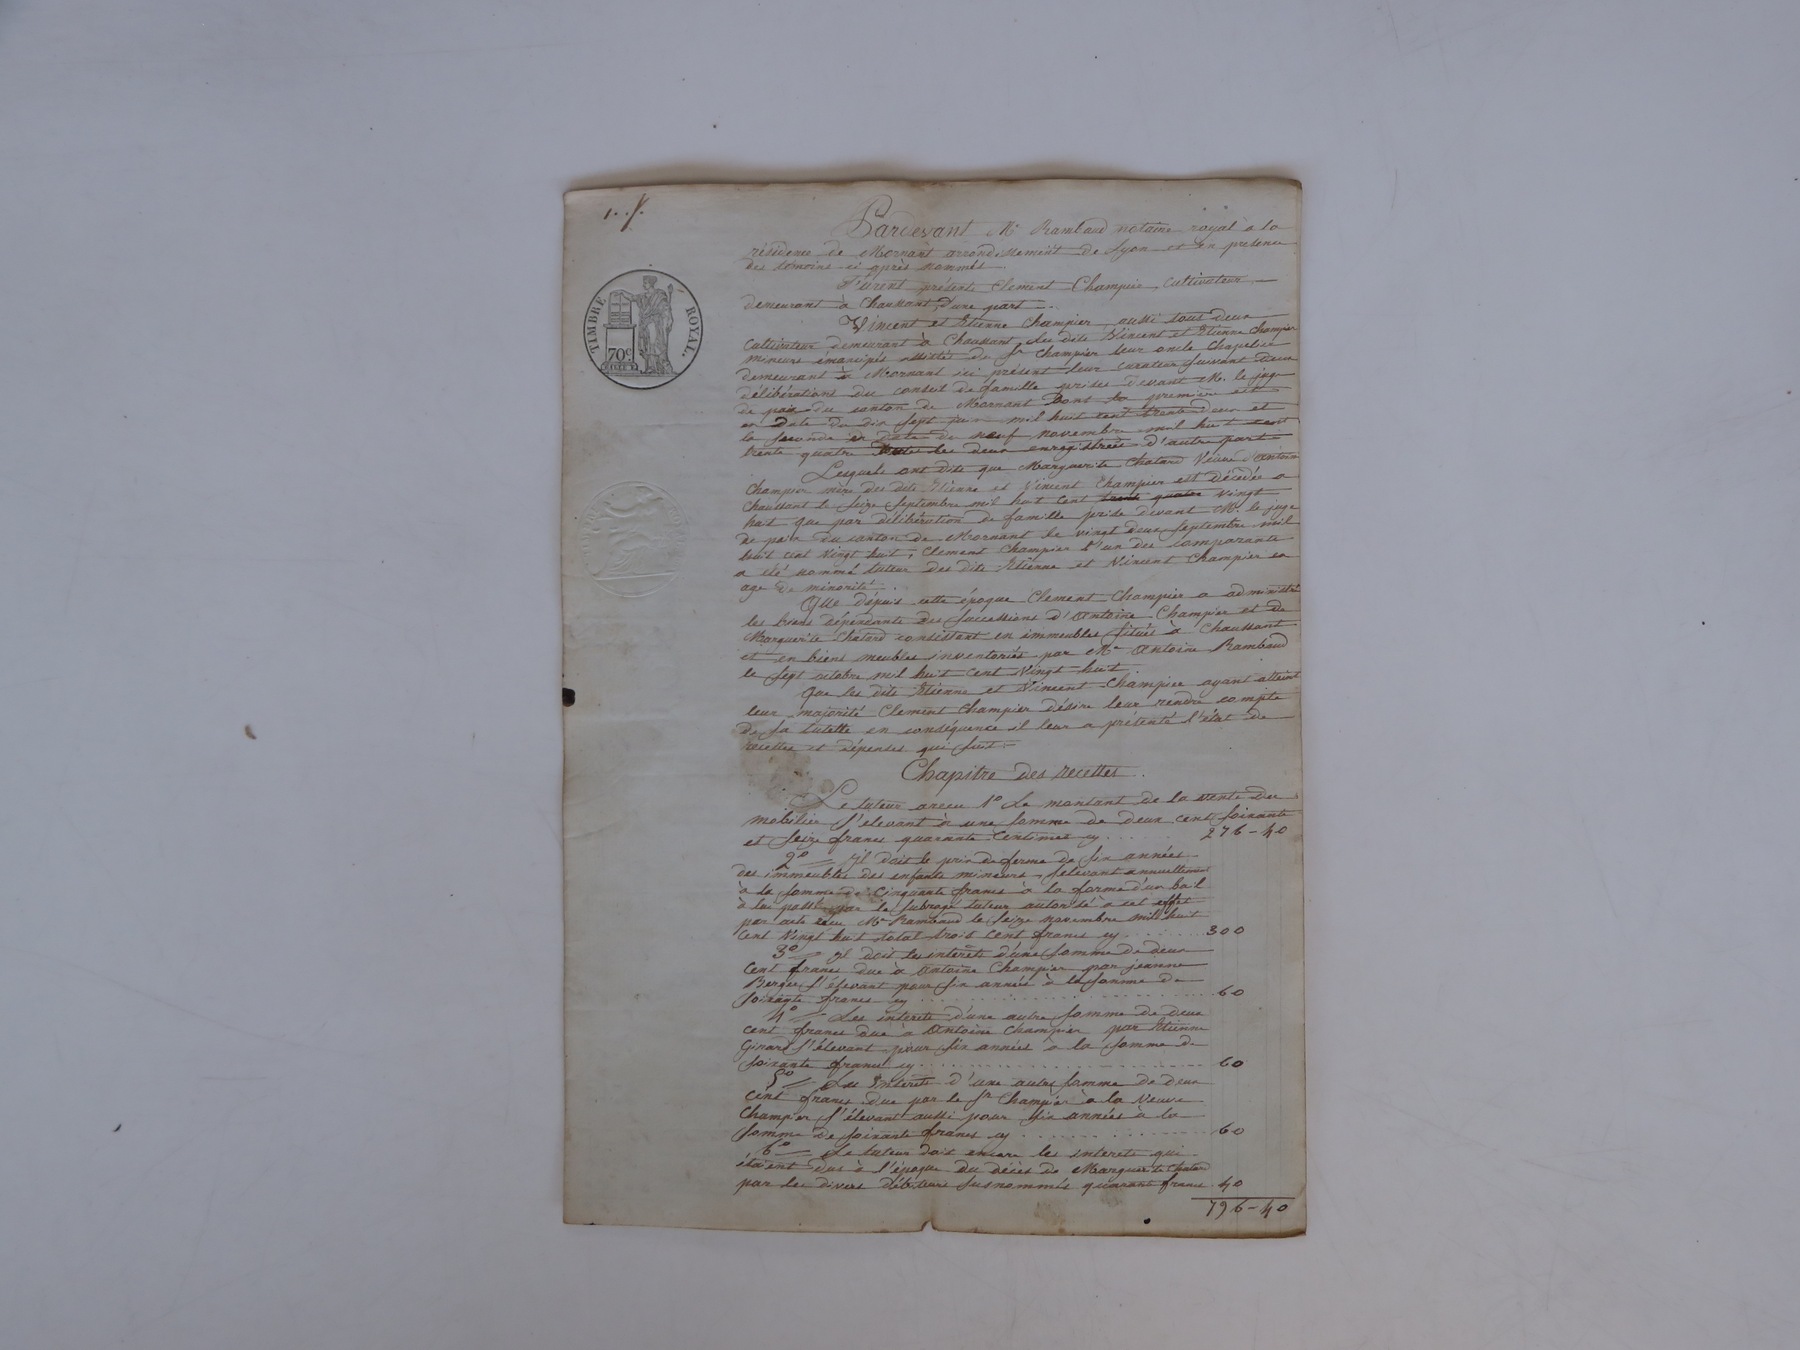 1.
TIMBRE ROYAL.
70c.
Pardevant Me Rambaud notaire royal à la
résidence de Mornant arrondissement de Lyon et en présence
des témoins ci après nommés.
Furent présents Clement Champier, cultivateur,
demeurant à Chaussant, d'une part.
Vincent et Etienne Champier, aussi tous deux
cultivateurs demeurant à Chaussant, les dits Vincent et Etienne Champier
mineurs émancipés assistés de Sr Champier leur oncle Chapelier
demeurant à Mornant ici présent leur curateur suivant deux
délibérations du conseil de famille prises devant Mr. le juge
de paix du canton de Mornant dont la première est
en date du dix sept juin mil huit cent trente deux et
la seconde en date du neuf novembre mil huit cent
trente quatre toutes les deux enregistrées d'autre part
Lesquels ont dit que Marguerite Chatard Veuve d'Antoine
Champier mère des dits Etienne et Vincent Champier est décédée a
Chaussant le seize Septembre mil huit cent trente quatre vingt
huit que par délibération de famille prise devant Mr. le juge
de paix du canton de Mornant le vingt deux Septembre mil
huit cent vingt huit, Clement Champier l'un des comparants
a été nommé tuteur des dits Etienne et Vincent Champier en
age de minorité.
Que dépuis cette époque Clement Champier a administré
les biens dépendants des successions d'Antoine Champier et de
Marguerite Chatard consistant en immeubles situés à Chaussant
et en biens meubles inventoriés par Me Antoine Rambaud
le sept octobre mil huit cent vingt huit.
Que les dits Etienne et Vincent Champier ayant atteint
leur majorité Clement Champier désire leur rendre compte
de sa tutelle en conséquence il leur a présenté l'état de
recettes et dépenses qui suit:
Chapitre des recettes.
Le tuteur a reçu 1o Le montant de la vente du
mobilier s'elevant à une somme de deux cent soixante
et seize francs quarante centimes cy ..... 276-40
2o = Il doit le prix de ferme de six années
des immeubles des enfants mineurs, s'elevant annuellement
à la somme de cinquante francs à la forme d'un bail
à lui passé par le subrogé tuteur autorisé à cet effet
par acte reçu Me Rambaud le seize novembre mil huit
cent vingt huit total trois cent francs cy ....... 300
3o = Il doit les intérêts d'une somme de deux
cent francs due à Antoine Champier par jeanne
Berger s'élevant pour six années à la somme de
soixante francs cy ................ 60
4o = Les intérêts d'une autre somme de deux
cent francs due à Antoine Champier par Etienne
Girard s'élevant pour six années à la somme de
soixante francs cy ................ 60
5o = Les Intérêts d'une autre somme de deux
cent francs due par le Sr Champier à la Veuve
Champier s'élevant aussi pour six années à la
somme de soixante francs cy ............ 60
6o = Le tuteur doit encore les intérêts qui
étaient dus à l'époque du décès de Marguerite Chatard
par les divers débiteurs susnommés quarante francs . 40
796-40